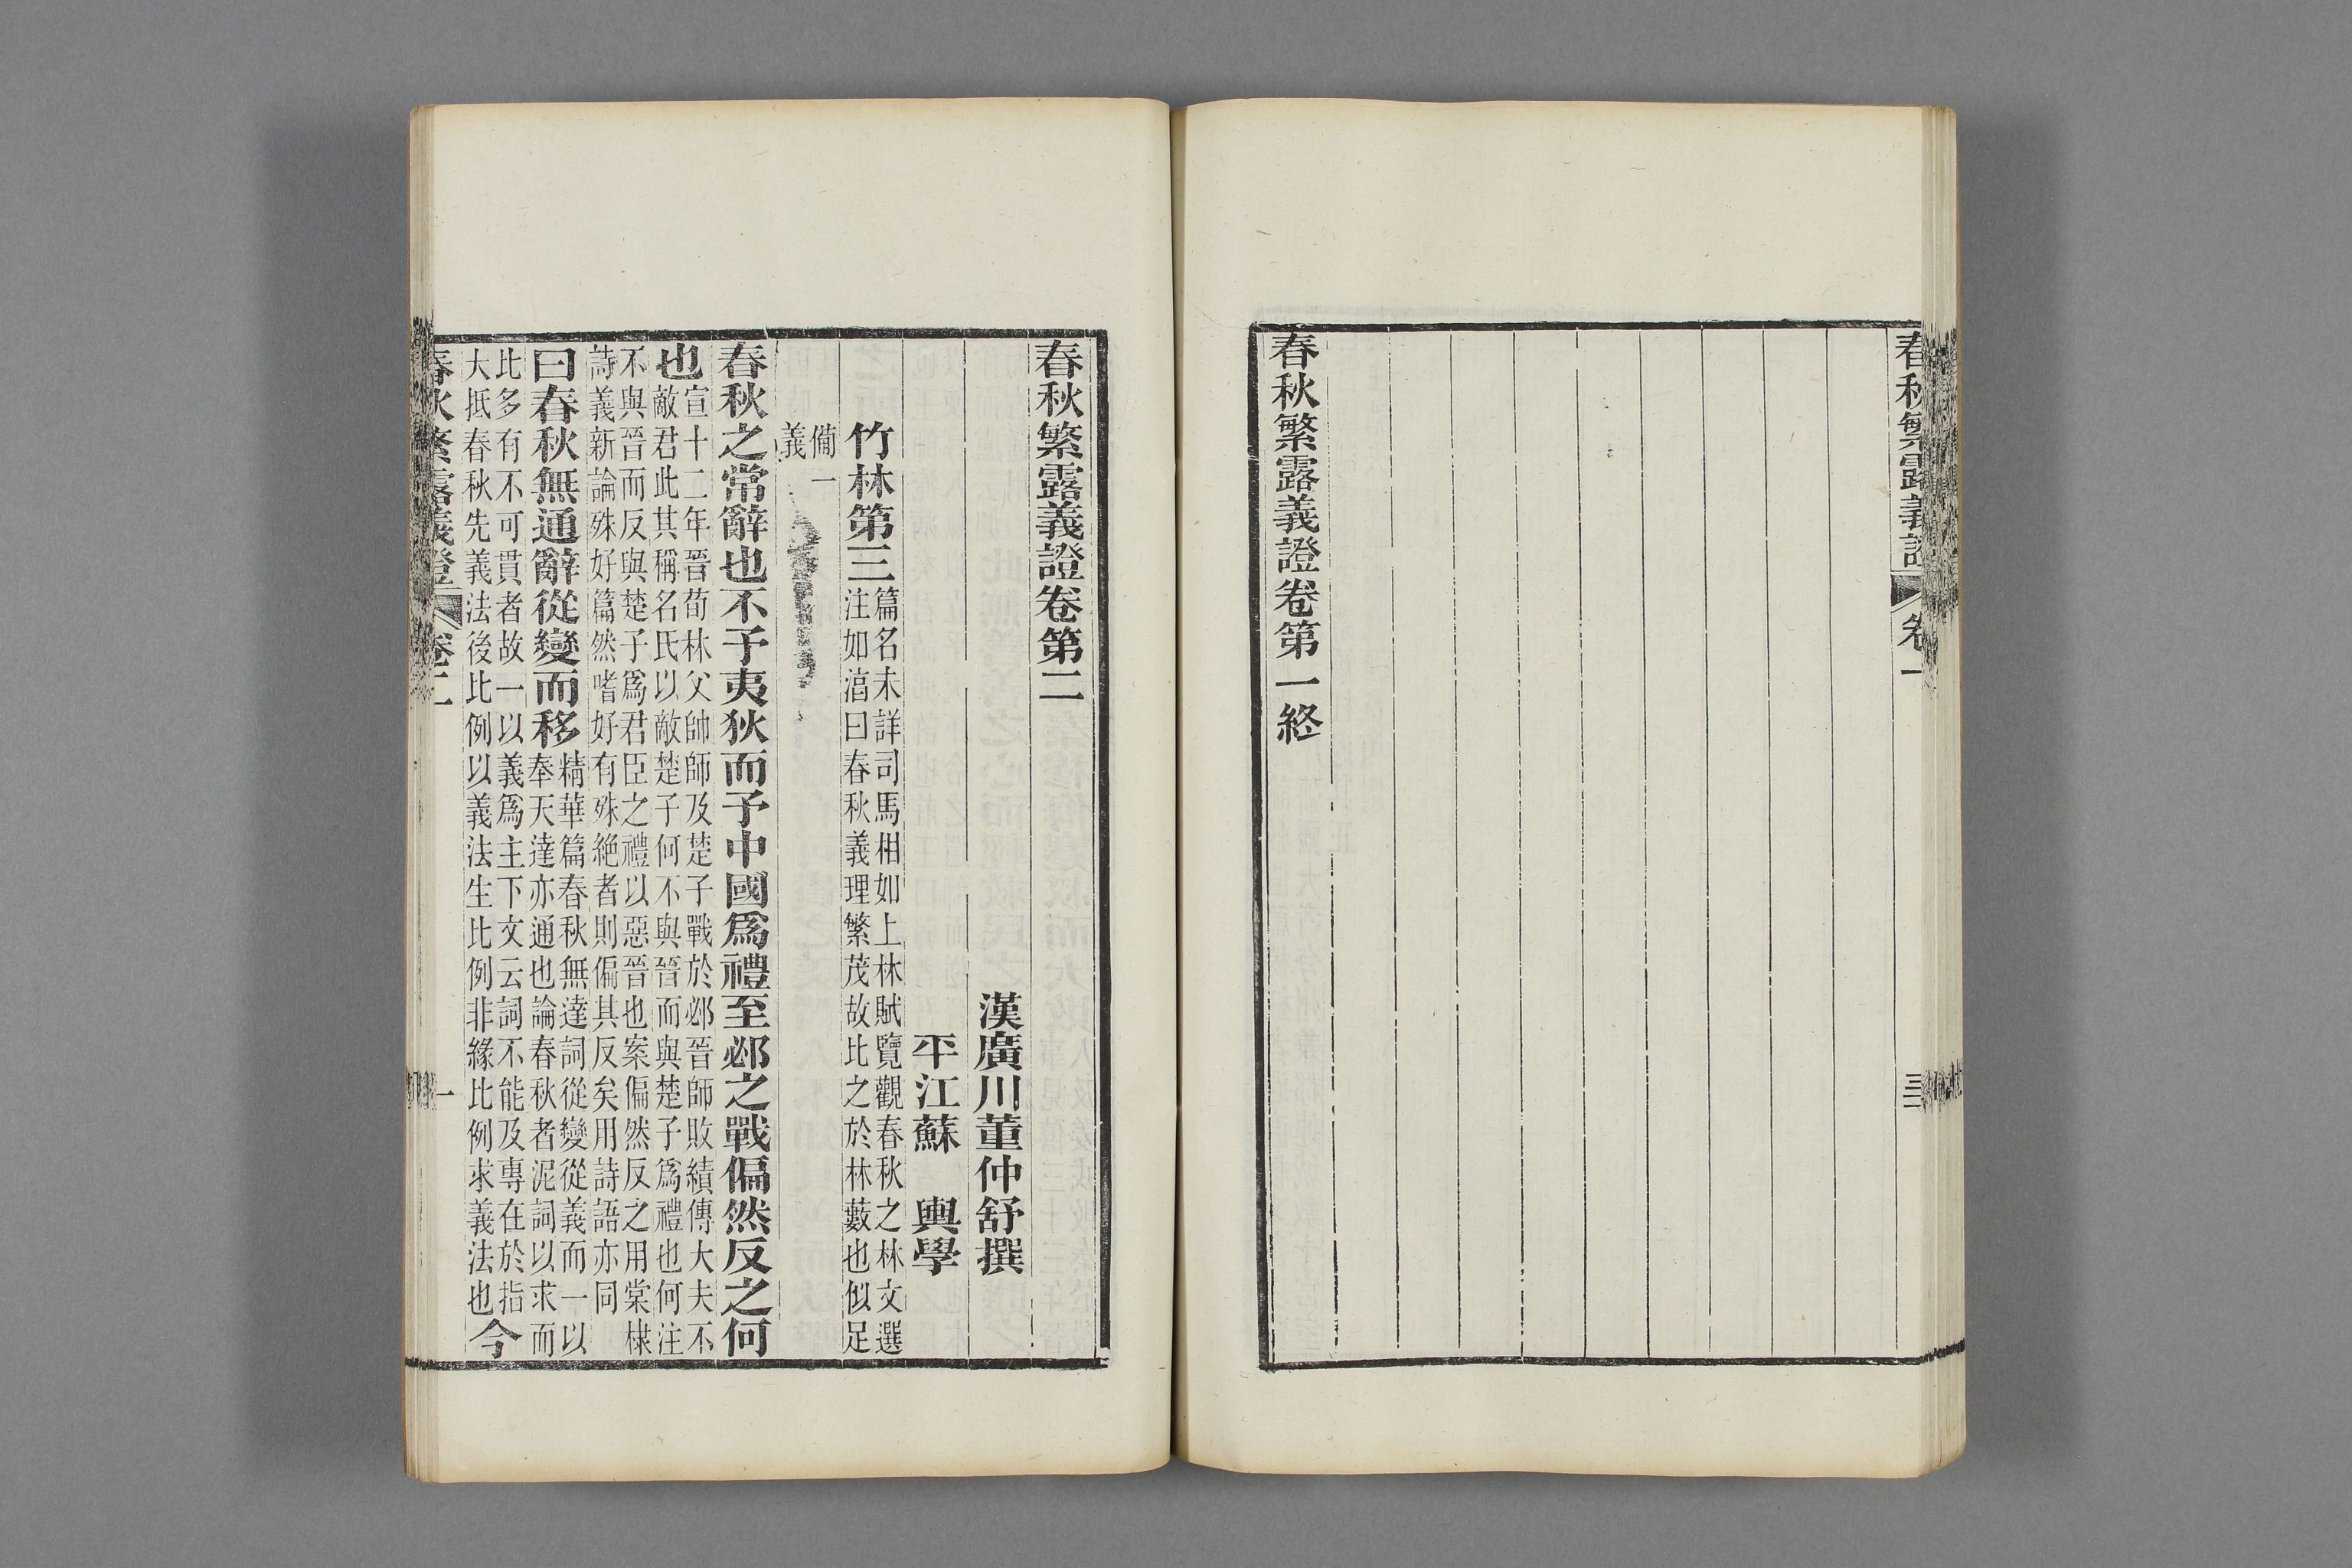 春秋繁露義證
卷一
三
春秋繁露義證卷第一終
春秋繁露義證卷第二
漢廣川董仲舒撰
平江蘇 輿學
竹林第三
篇名未詳司馬相如上林賦覽觀春秋之林文選
注如湻曰春秋義理繁茂故比之於林藪也似足
備一
義
春秋之常辭也不予夷狄而予中國爲禮至邲之戰偏然反之何
也
宣十二年晉荀林父帥師及楚子戰於邲晉師敗績傳大夫不
敵君此其稱名氏以敵楚子何不與晉而與楚子爲禮也何注
不與晉而反與楚子爲君臣之禮以惡晉也案偏然反之用棠棣
詩義新論殊好篇然嗜好有殊絶者則偏其反矣用詩語亦同
曰春秋無通辭從變而移
精華篇春秋無達詞從變從義而一以
奉天達亦通也論春秋者泥詞以求而
比多有不可貫者故一以義爲主下文云詞不能及專在於指
大抵春秋先義法後比例以義法生比例非緣比例求義法也
今
春秋繁露義證
卷二
一